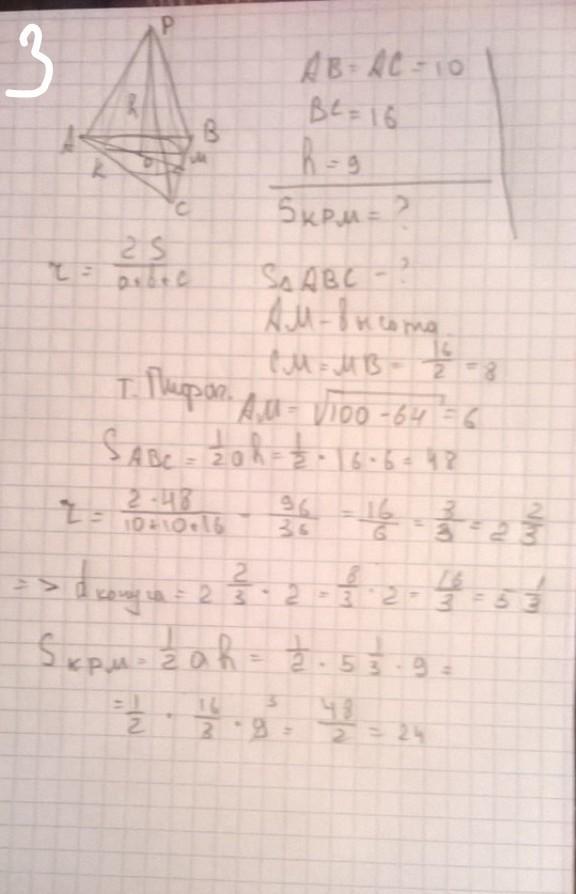 3
P
h
A
B
O
M
K
C
AB = AC = 10
BC = 16
h = 9
Sкрм = ?
r = 2S / a+b+c
S△ABC - ?
AM - высота
CM = MB = 16/2 = 8
т. Пифаг. AM = √100 - 64 = 6
SABC = 1/2 ah = 1/2 · 16 · 6 = 48
r = 2·48 / 10+10+16 = 96/36 = 16/6 = 3/3 = 2 2/3
=> d конуса = 2 2/3 · 2 = 8/3 · 2 = 16/3 = 5 1/3
Sкрм = 1/2 ah = 1/2 · 5 1/3 · 9 =
= 1/2 · 16/3 · 9 3 = 48/2 = 24